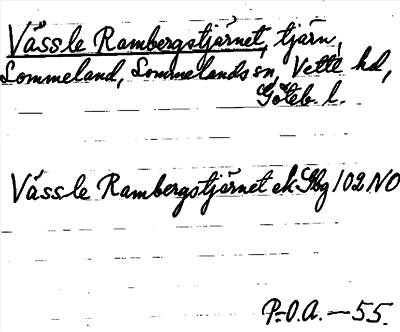 Vässle Rambergstjärnet, tjärn,
Lommeland, Lommelands sn, Vette hd,
Göteb. l.
Vässle Rambergstjärnet ek Gbg 102 NO
P.O.A. — 55.